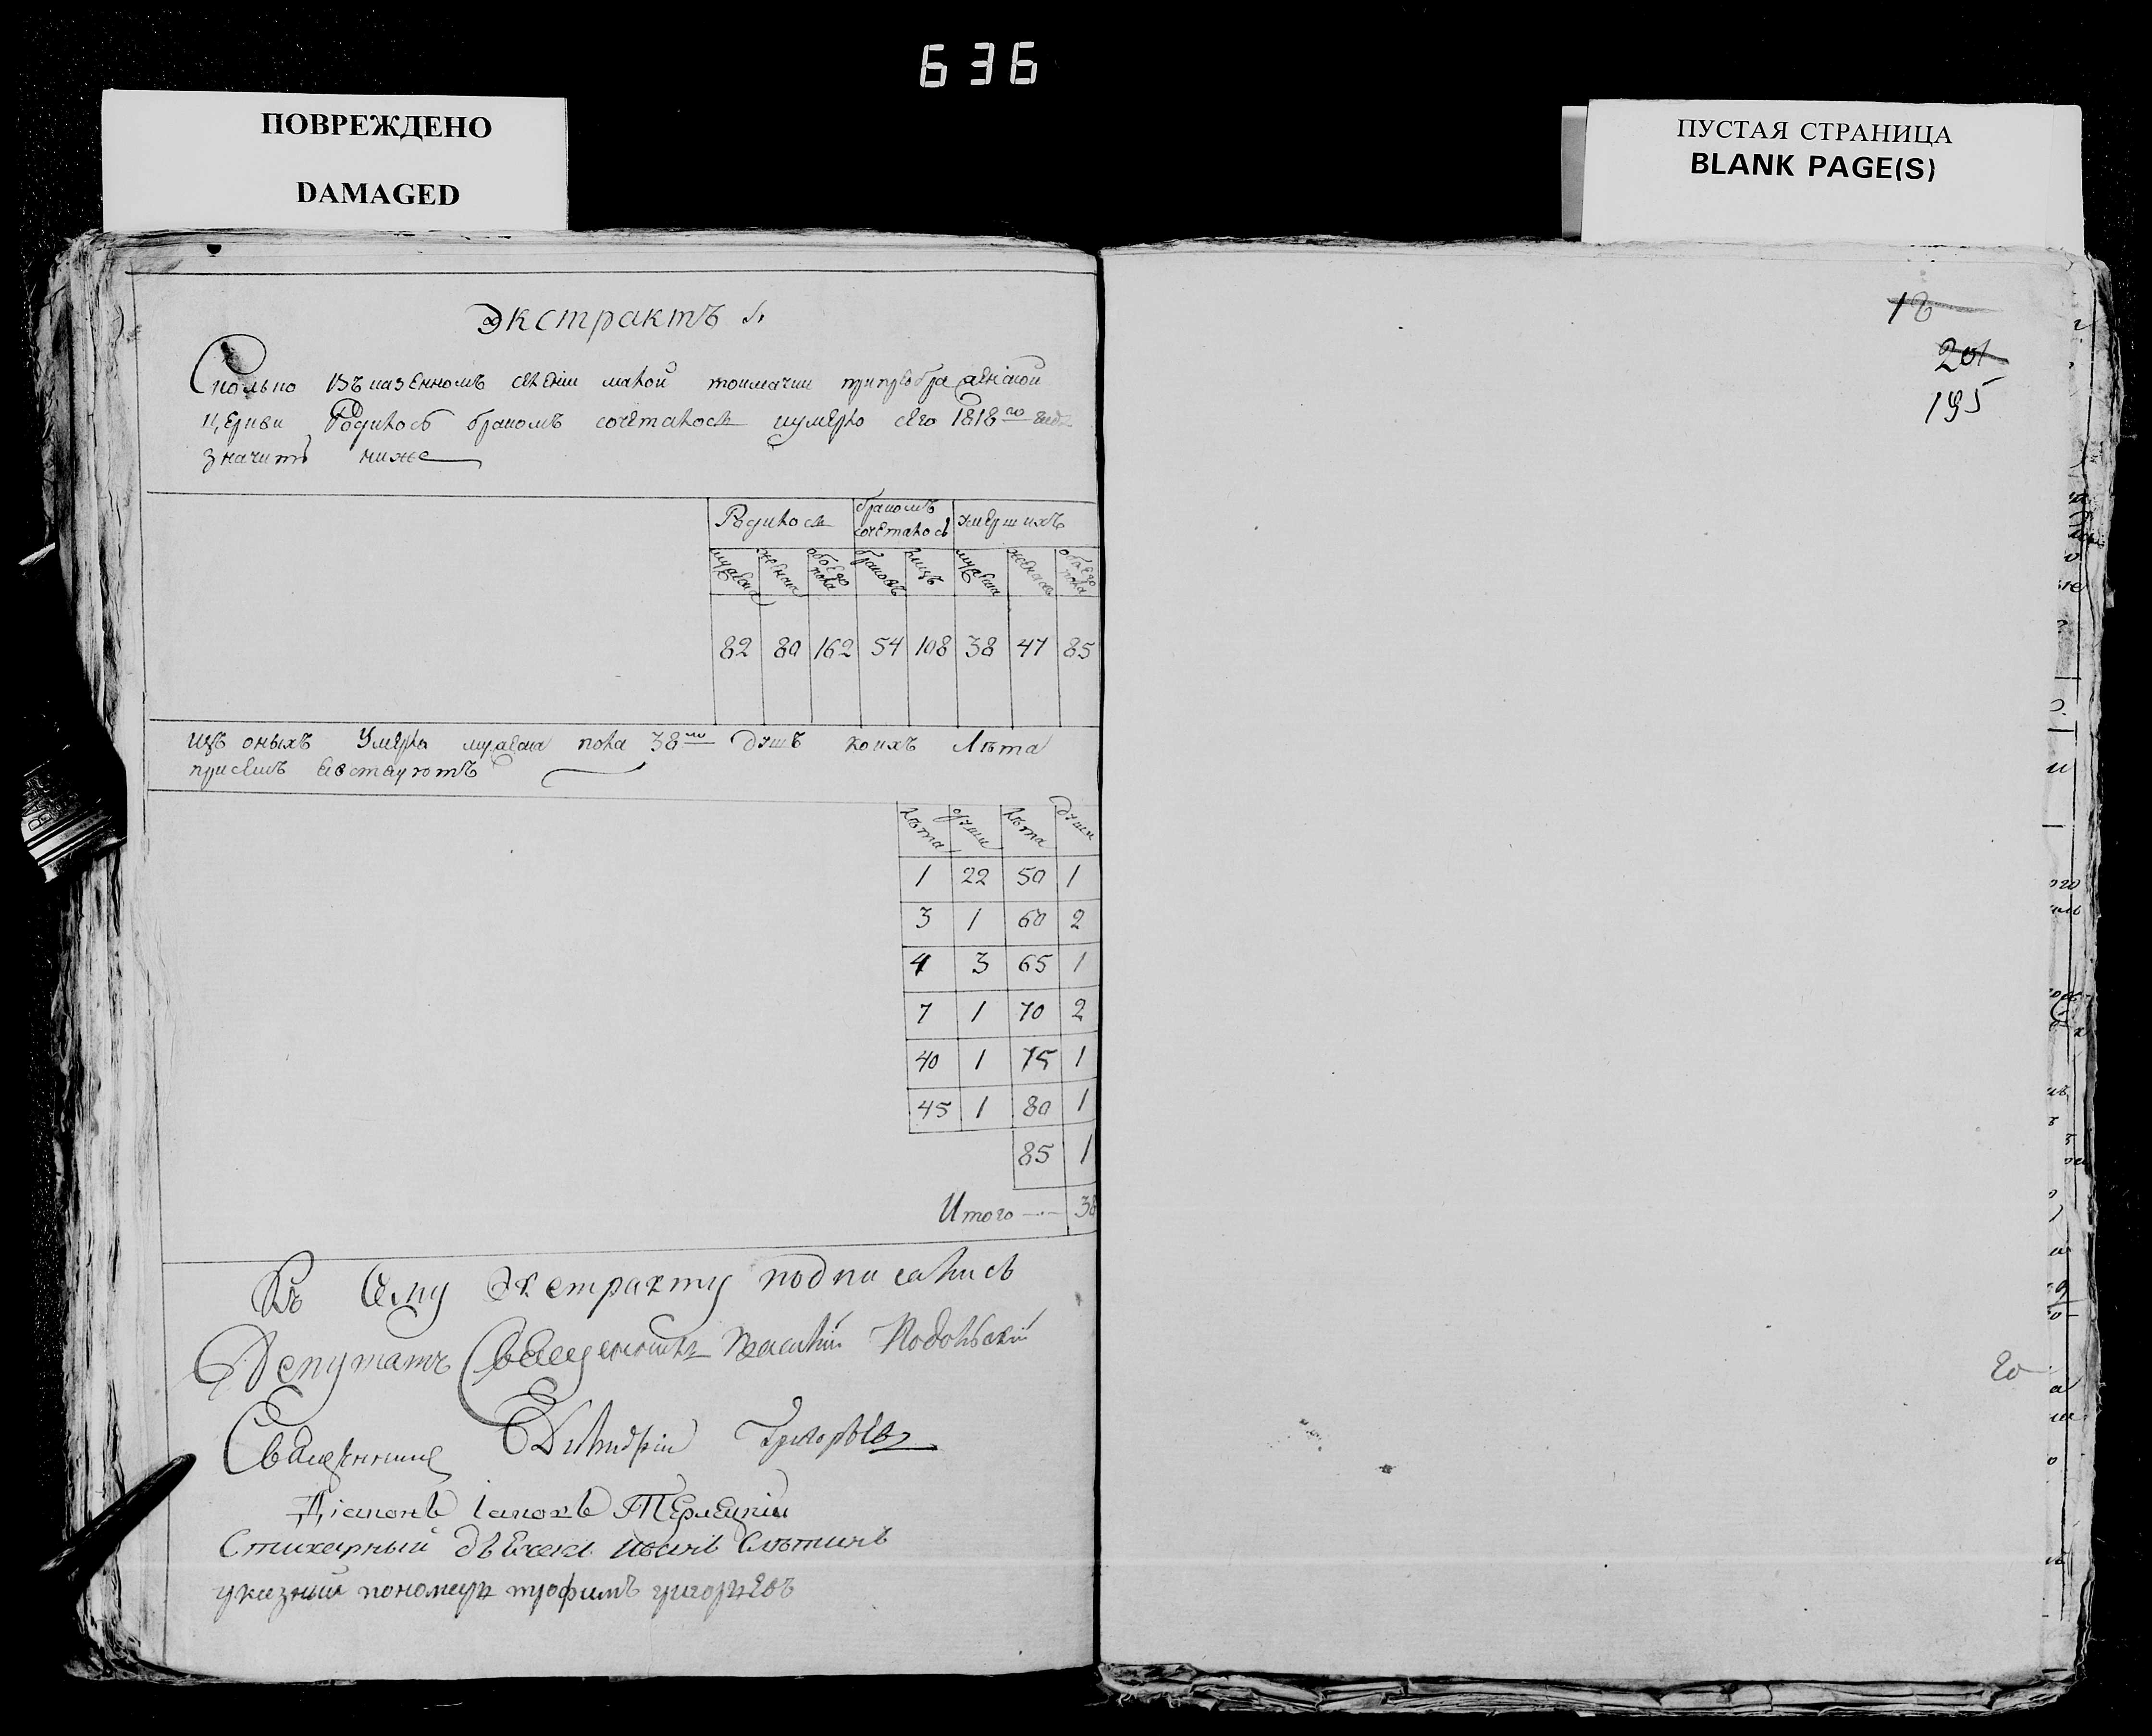 636
ПОВРЕЖДЕНО
DAMAGED
ПУСТАЯ СТРАНИЦА
BLANK PAGE(S)
Экстрактъ
Сколько въ казенномъ селеніи малой токмачки при преображенской
церкви родилось бракомъ сочеталось и умерло сего 1818го года
значитъ ниже
Родилось бракомъ сочеталось умершихъ
мужеска женска обоего пола браковъ лицъ мужеска женска обоего пола
82 80 162 54 108 38 47 85
изъ оныхъ умерло мужеска пола 38 душъ коихъ лѣта
при семъ
лѣта души лѣта души
1 22 50 1
3 1 60 2
4 3 65 1
7 1 70 2
40 1 75 1
45 1 80 1
85 1
Итого 38
Къ сему экстракту подписались
Депутатъ Священникъ Василій Подольскій
Священникъ Димитрій Григорьевъ
Діаконъ Іаковъ Терлецкій
Стихарный дьячекъ
указный пономарь трофимъ григорьевъ
18
201
195
20